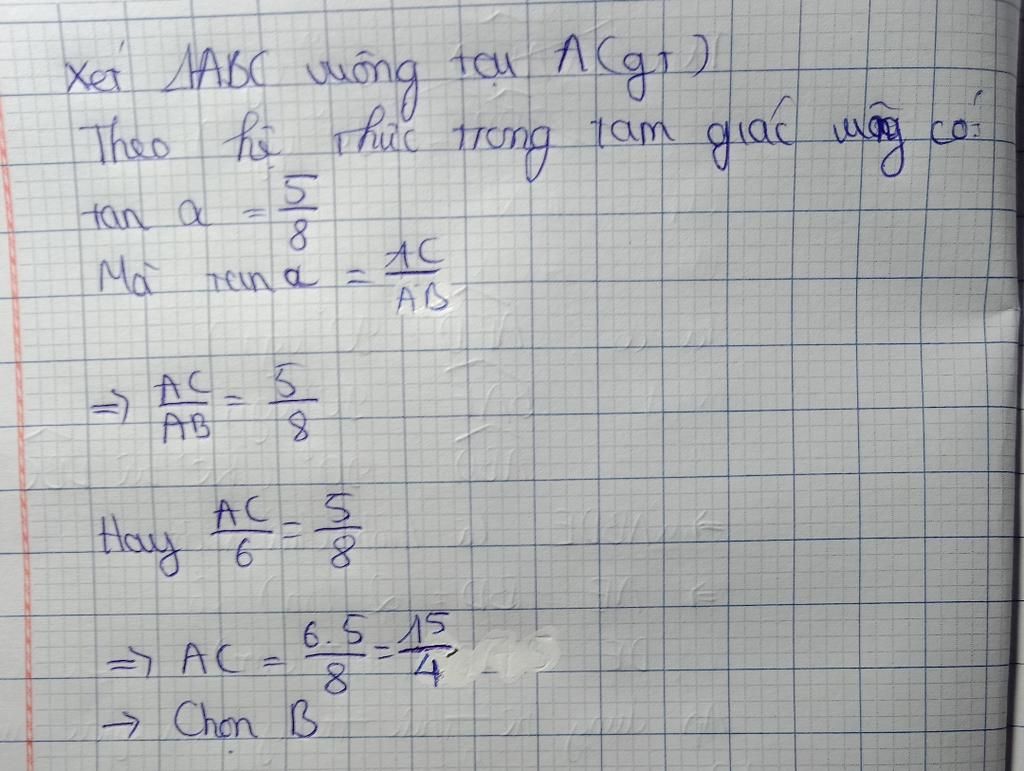 Xét ΔABC vuông tại A (gt)
Theo hệ thức trong tam giác vuông có:
tan α = 5/8
Mà tan α = AC/AB
=> AC/AB = 5/8
Hay AC/6 = 5/8
=> AC = 6.5/8 = 15/4
→ Chọn B